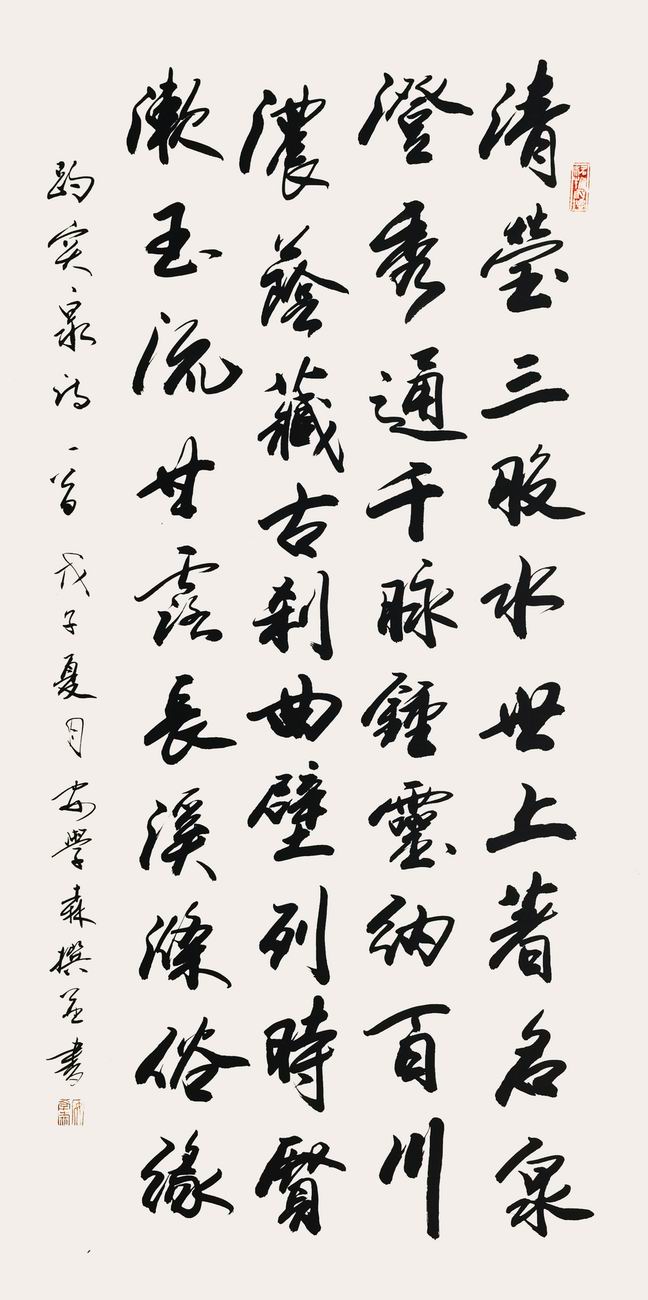 清瑩三股水世上著名泉
澄秀通千脉鍾靈納百川
濃蔭藏古刹曲壁列時賢
漱玉流甘露長溪滌俗緣
趵突泉詩一首 戊子夏月安學森撰并書